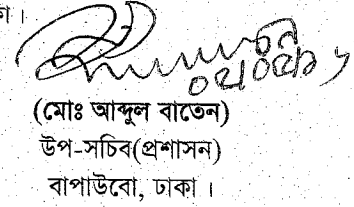 কা ।
(মোঃ আব্দুল বাতেন)
উপ-সচিব(প্রশাসন)
বাপাউবো, ঢাকা ।